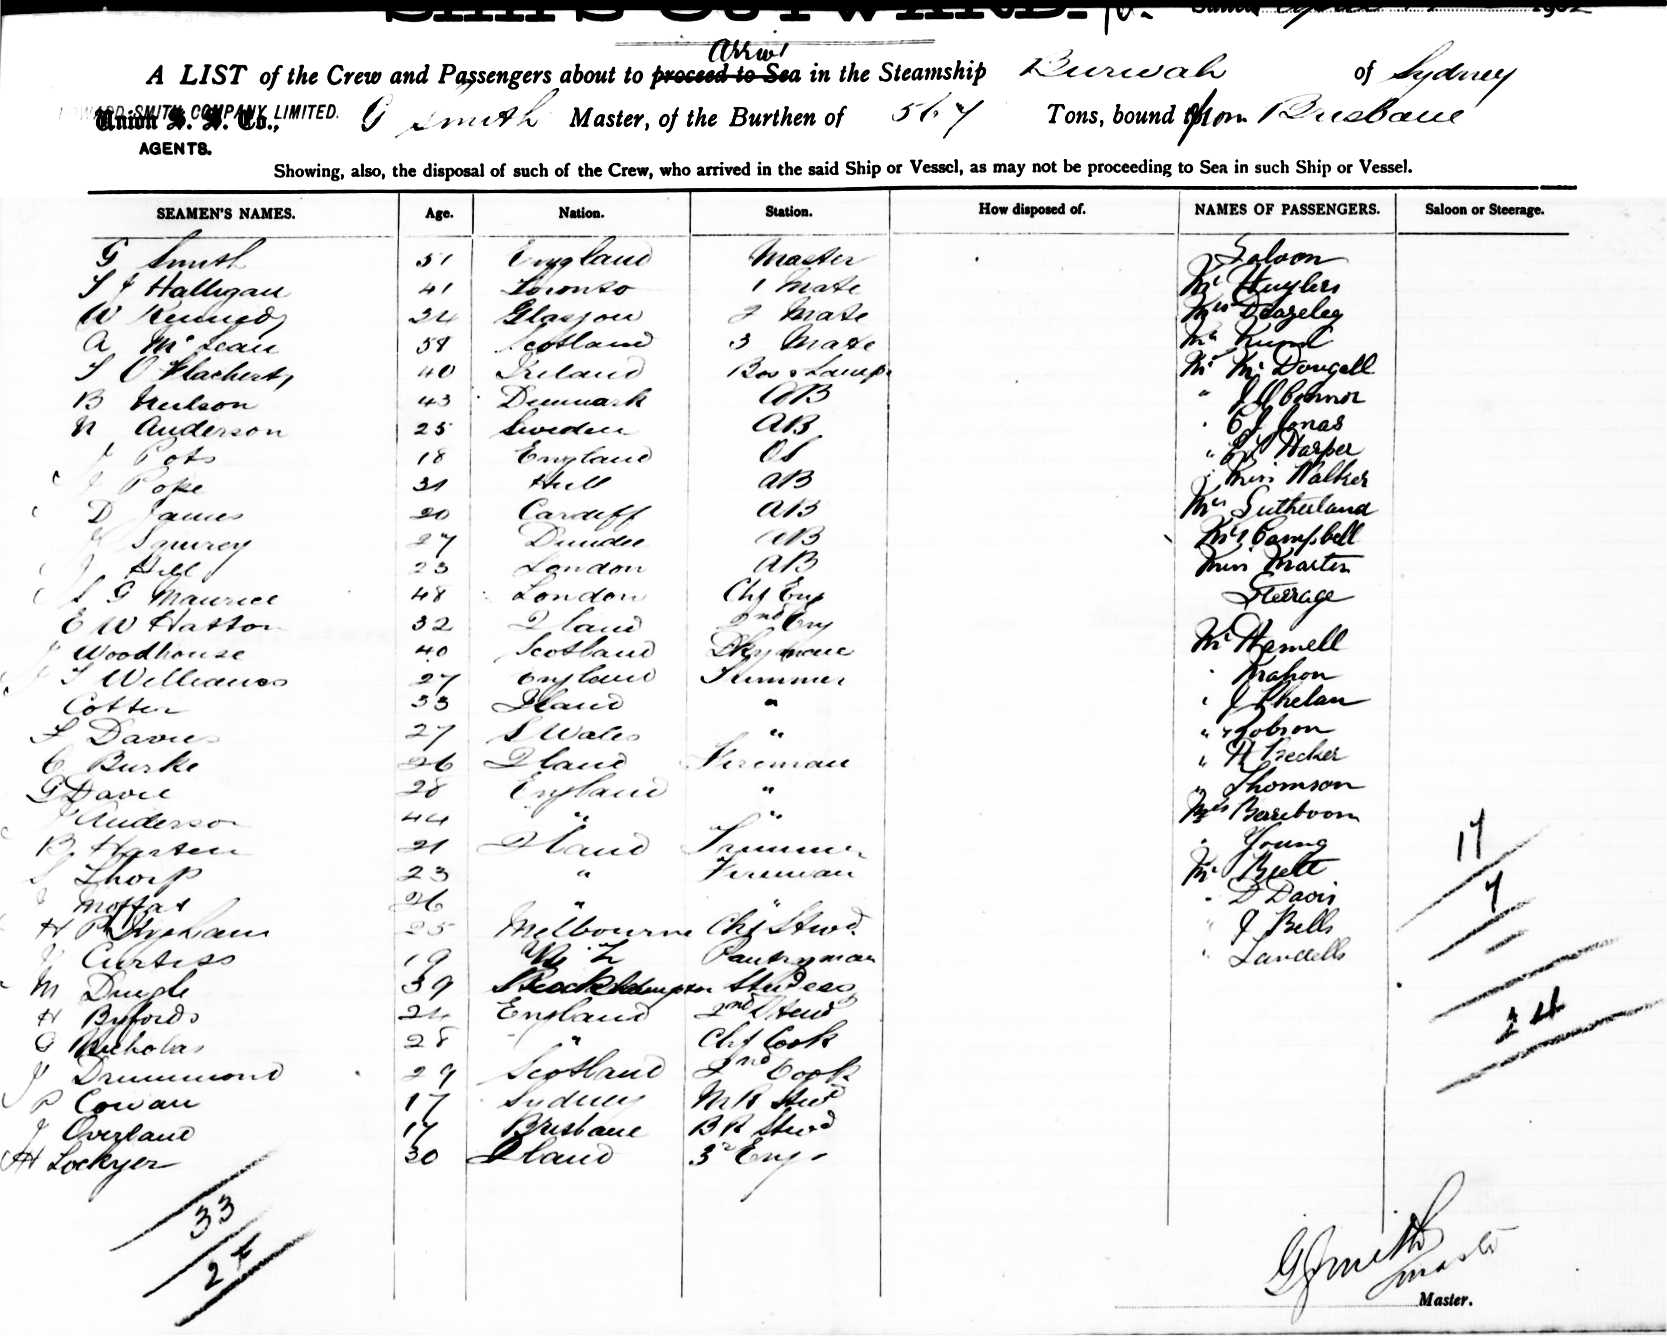 SHIP'S OUTWARD.
1902
Arriv
A LIST of the Crew and Passengers about to proceed to Sea in the Steamship Burwah of Sydney
HOWARD SMITH COMPANY LIMITED.
Union S. S. Co., G Smith Master, of the Burthen of 567 Tons, bound from Brisbane
AGENTS.
Showing, also, the disposal of such of the Crew, who arrived in the said Ship or Vessel, as may not be proceeding to Sea in such Ship or Vessel.
SEAMEN'S NAMES. Age. Nation. Station. How disposed of. NAMES OF PASSENGERS. Saloon or Steerage.
G Smith 51 England Master Saloon
T J Halligan 41 Toronto 1 Mate Mr Huybers
W Kennedy 34 Glasgow 2 Mate Mrs Dazeley
A McLean 58 Scotland 3 Mate Mr
T O'Flacherty 40 Ireland Bos & Lamps Mr McDougall
B Neilson 43 Denmark AB " J O'Connor
N Anderson 25 Sweden AB " C J Jonas
J Pots 18 England OS " Harper
J Pope 31 Hull AB Miss Walker
D James 20 Cardiff AB Mrs Sutherland
27 Dundee AB Mrs Campbell
J Hill 23 London AB Miss Martin
S G Maurice 48 London Chf Eng Steerage
E W Hatton 32 Qland 2nd Eng
J Woodhouse 40 Scotland Dkyman Mr Hemell
J T Williams 27 England Trimmer " Mahon
Cotter 33 Qland " " J Phelan
F Davies 27 S Wales " " Robson
C Burke 26 Qland Fireman " H Becker
G Davie 28 England " " Thomson
J Anderson 44 " " Mrs Bereboom
B Harten 21 Qland Trimmer " Young
S Thorp 23 " Fireman Mr Brett
J Moffat 26 " " " D Davis
H P Graham 25 Melbourne Chf Stwd. " J Bells
J Curtiss 19 Pantryman " Landells
M Dingle 39 Rockhampton Stwdess
H Byfords 24 England 2nd Stewd
G Nicholas 28 " Chf Cook
J Drummond 29 Scotland 2nd Cook
P Cowan 17 Sydney M R Stewd
J Overland 17 Brisbane B R Stewd
A H Lockyer 30 Qland 3rd Eng.
17
7
24
33
24
G Smith
Master
Master.